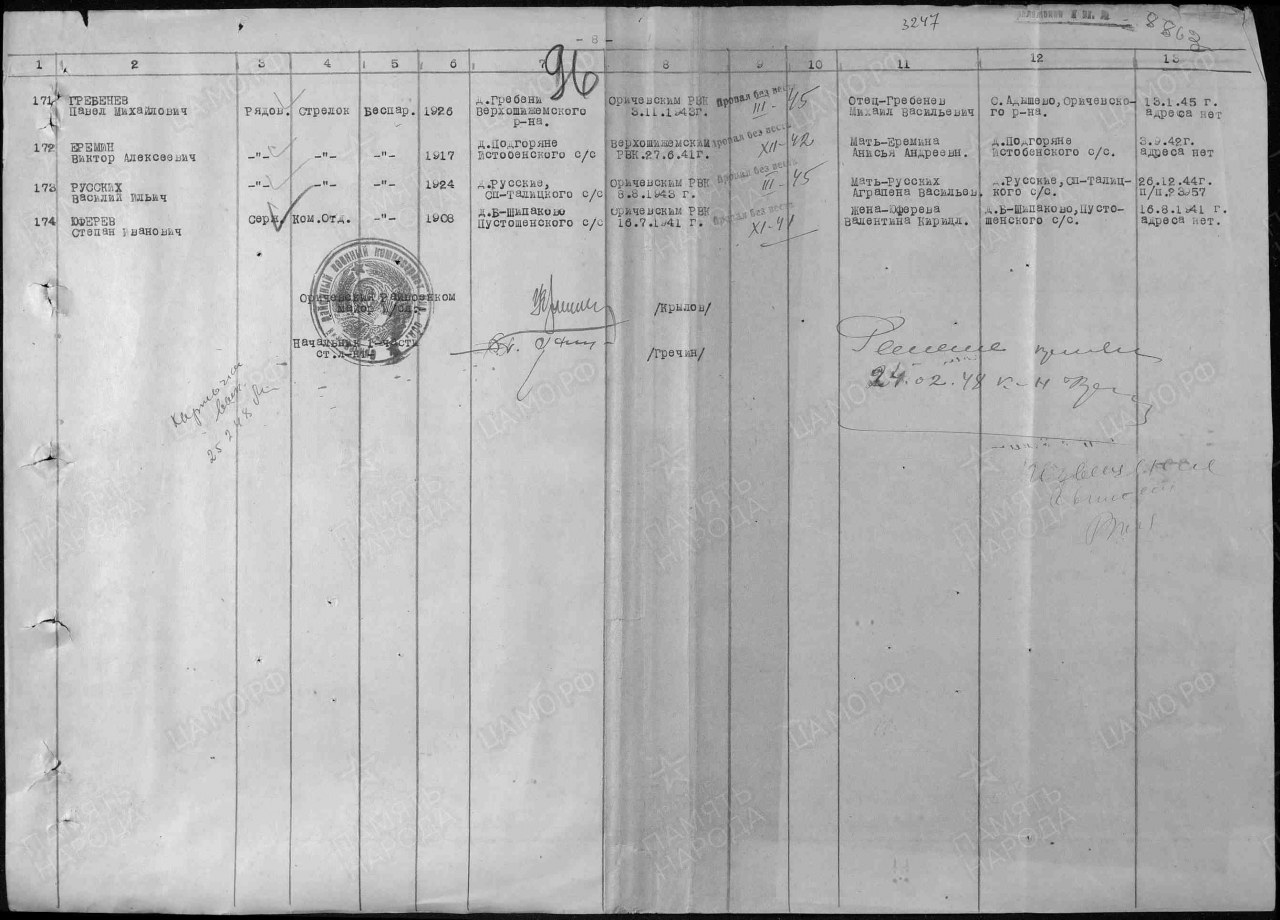 3247
8862
- 8 -
96
1 2 3 4 5 6 7 8 9 10 11 12 13
171 ГРЕБЕНЕВ Павел Михайлович Рядов. Стрелок Беспар. 1926 д.Гребени Верхошижемского р-на. Оричевским РВК 3.11.1943г. Пропал без вести III-45 Отец-Гребенев Михаил Васильевич С.Адышево,Оричевско-го р-на. 13.1.45 г. адреса нет
172 ЕРЕМИН Виктор Алексеевич -"- -"- -"- 1917 д.Подгоряне Истобенского с/с Верхошижемский РВК.27.6.41г. Пропал без вести XII-42 Мать-Еремина Анисья Андреевн. д.Подгоряне Истобенского с/с. 3.9.42г. адреса нет
173 РУССКИХ Василий Ильич -"- -"- -"- 1924 д.Русские, Сп-Талицкого с/с Оричевским РВК 8.8.1943 г. Пропал без вести III-45 Мать-Русских Аграпена Васильев. д.Русские,Сп-Талиц-кого с/с. 26.12.44г. п/п.23957
174 ЮФЕРЕВ Степан Иванович Серж. Ком.Отд. -"- 1908 д.Б-Шипаково Пустошенского с/с Оричевским РВК 16.7.1941 г. Пропал без вести XI-41 Жена-Юферева Валентина Кирилл. д.Б-Шипаково,Пусто-шенского с/с. 16.8.1941 г. адреса нет.
Оричевский Райвоенком
майор и/сл. /Крылов/
Начальник 1-части
ст.л-нт /Гречин/
24.02.48
25 2 48
ЦАМО.РФ
ПАМЯТЬ НАРОДА